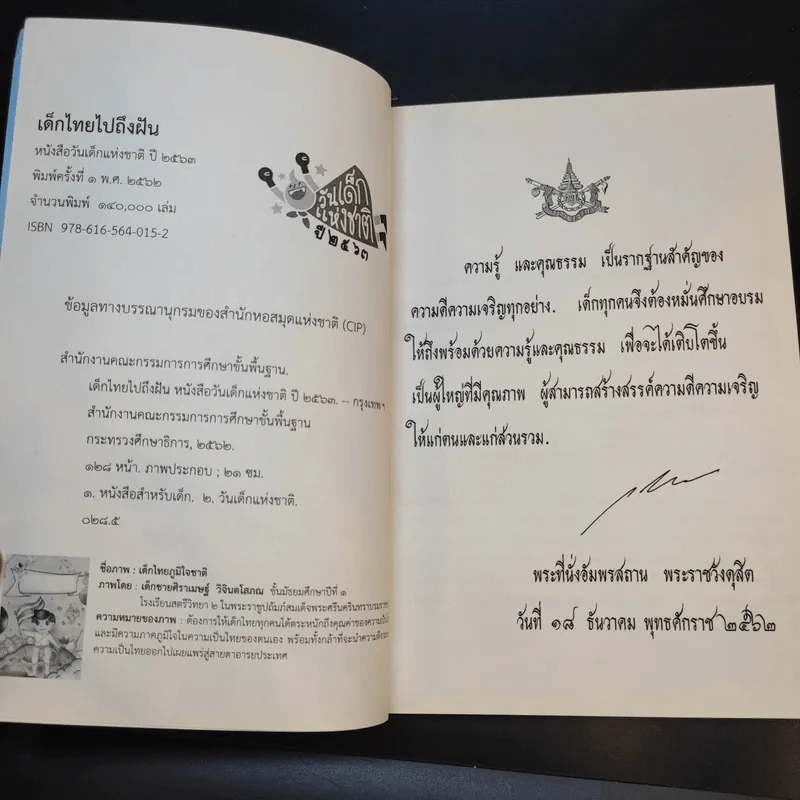 เด็กไทยไปถึงฝัน
หนังสือวันเด็กแห่งชาติ ปี ๒๕๖๓
พิมพ์ครั้งที่ ๑ พ.ศ. ๒๕๖๒
จำนวนพิมพ์ ๑๔๐,๐๐๐ เล่ม
ISBN 978-616-564-015-2
วันเด็ก
แห่งชาติ
ปี ๒๕๖๓
ข้อมูลทางบรรณานุกรมของสำนักหอสมุดแห่งชาติ (CIP)
สำนักงานคณะกรรมการการศึกษาขั้นพื้นฐาน.
เด็กไทยไปถึงฝัน หนังสือวันเด็กแห่งชาติ ปี ๒๕๖๓. – กรุงเทพฯ
สำนักงานคณะกรรมการการศึกษาขั้นพื้นฐาน
กระทรวงศึกษาธิการ, ๒๕๖๒.
๑๒๘ หน้า. ภาพประกอบ ; ๒๑ ซม.
๑. หนังสือสำหรับเด็ก. ๒. วันเด็กแห่งชาติ.
๐๒๘.๕
ชื่อภาพ : เด็กไทยภูมิใจชาติ
ภาพโดย : เด็กชายศิราเมษฐ์ วิจินตโสภณ ชั้นมัธยมศึกษาปีที่ ๑
โรงเรียนสตรีวิทยา ๒ ในพระราชูปถัมภ์สมเด็จพระศรีนครินทราบรมราช
ความหมายของภาพ : ต้องการให้เด็กไทยทุกคนได้ตระหนักถึงคุณค่าของความเป็น
และมีความภาคภูมิใจในความเป็นไทยของตนเอง พร้อมทั้งกล้าที่จะนำความ
ความเป็นไทยออกไปเผยแพร่สู่สายตาอารยประเทศ
ความรู้ และคุณธรรม เป็นรากฐานสำคัญของ
ความดีความเจริญทุกอย่าง. เด็กทุกคนจึงต้องหมั่นศึกษาอบรม
ให้ถึงพร้อมด้วยความรู้และคุณธรรม เพื่อจะได้เติบโตขึ้น
เป็นผู้ใหญ่ที่มีคุณภาพ ผู้สามารถสร้างสรรค์ความดีความเจริญ
ให้แก่ตนและแก่ส่วนรวม.
พระที่นั่งอัมพรสถาน พระราชวังดุสิต
วันที่ ๑๘ ธันวาคม พุทธศักราช ๒๕๖๒